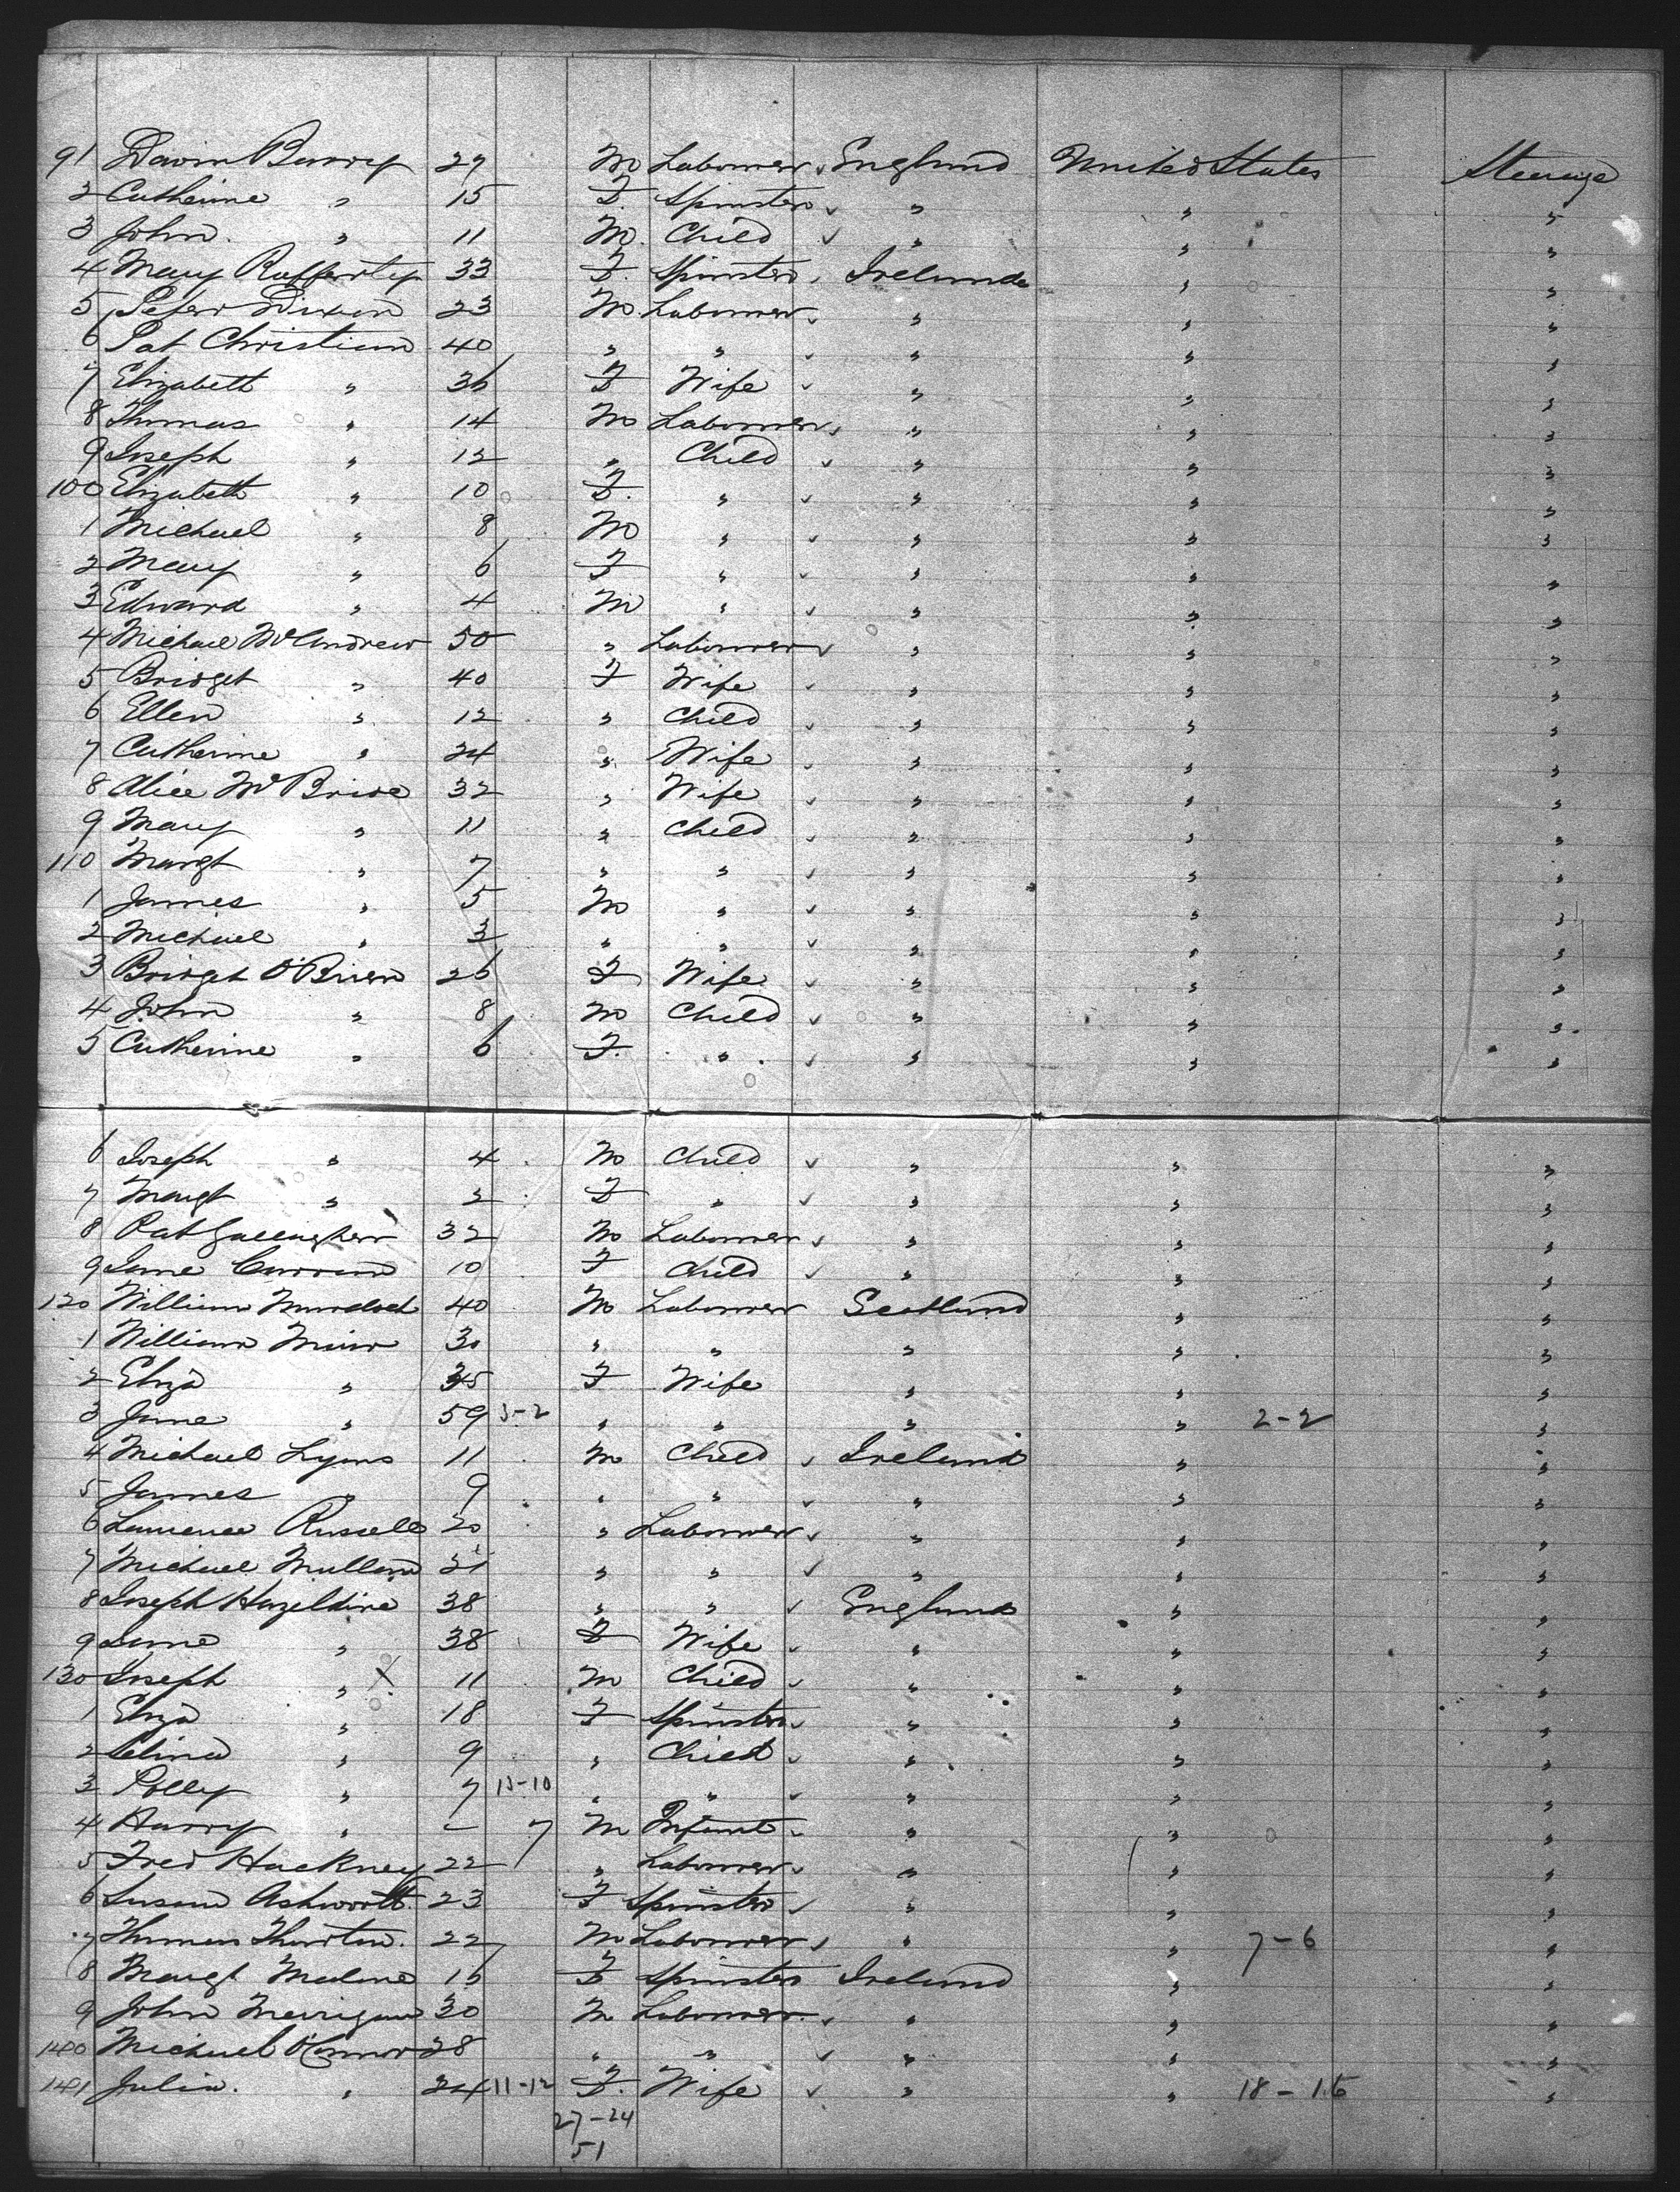 91 David Barry 29 M Labourer England United States Steerage
2 Catherine " 15 F. Spinster " " "
3 John. " 11 M. Child " " "
4 Mary Rafferty 33 F. Spinster Ireland " "
5 Peter Dixon 23 M. Labourer " " "
6 Pat Christian 40 " " " " "
7 Elizabeth " 36 F Wife " " "
8 Thomas " 14 M Labourer " " "
9 Joseph " 12 " Child " " "
100 Elizabeth " 10 F. " " " "
1 Michael " 8 M " " " "
2 Mary " 6 F " " " "
3 Edward " 4 M " " " "
4 Michael McAndrew 50 " Labourer " " "
5 Bridget " 40 F Wife " " "
6 Ellen " 12 " Child " " "
7 Catherine " 24 " Wife " " "
8 Alice McBride 32 " Wife " " "
9 Mary " 11 " Child " " "
110 Margt " 7 " " " " "
1 James " 5 M " " " "
2 Michael " 3 " " " " "
3 Bridget O'Brien 26 F Wife " " "
4 John " 8 M Child " " "
5 Catherine " 6 F. " " " "
6 Joseph " 4 M Child " " "
7 Margt " 2 F " " " "
8 Pat Gallagher 32 M Labourer " " "
9 Jane Curran 10 F Child " " "
120 William Murdoch 40 M Labourer Scotland " "
1 William Muir 30 " " " " "
2 Eliza " 35 F Wife " " "
3 Jane " 59 3-2 " " " " 2-2 "
4 Michael Lyons 11 M Child Ireland " "
5 James " 9 " " " " "
6 Laurence Russell 20 " Labourer " " "
7 Michael Mullen 21 " " " " "
8 Joseph Hazeldine 38 " " England " "
9 Jane " 38 F Wife " " "
130 Joseph " X 11 M Child " " "
1 Eliza " 18 F Spinster " " "
2 Selina " 9 " Child " " "
3 Polly " 7 13-10 " " " " "
4 Harry " - 7 M Infant " " "
5 Fred Hackney 22 " Labourer " " "
6 Susan Ashworth. 23 F Spinster " " "
7 Thomas Thurston. 22 M Labourer " " 7-6 "
8 Margt Malone 16 F Spinster Ireland " "
9 John Merrigan 30 M Labourer. " " "
140 Michael O'Connor 28 " " " " "
141 Julia. " 24 11-12 F. Wife " " 18-16 "
27-24
51